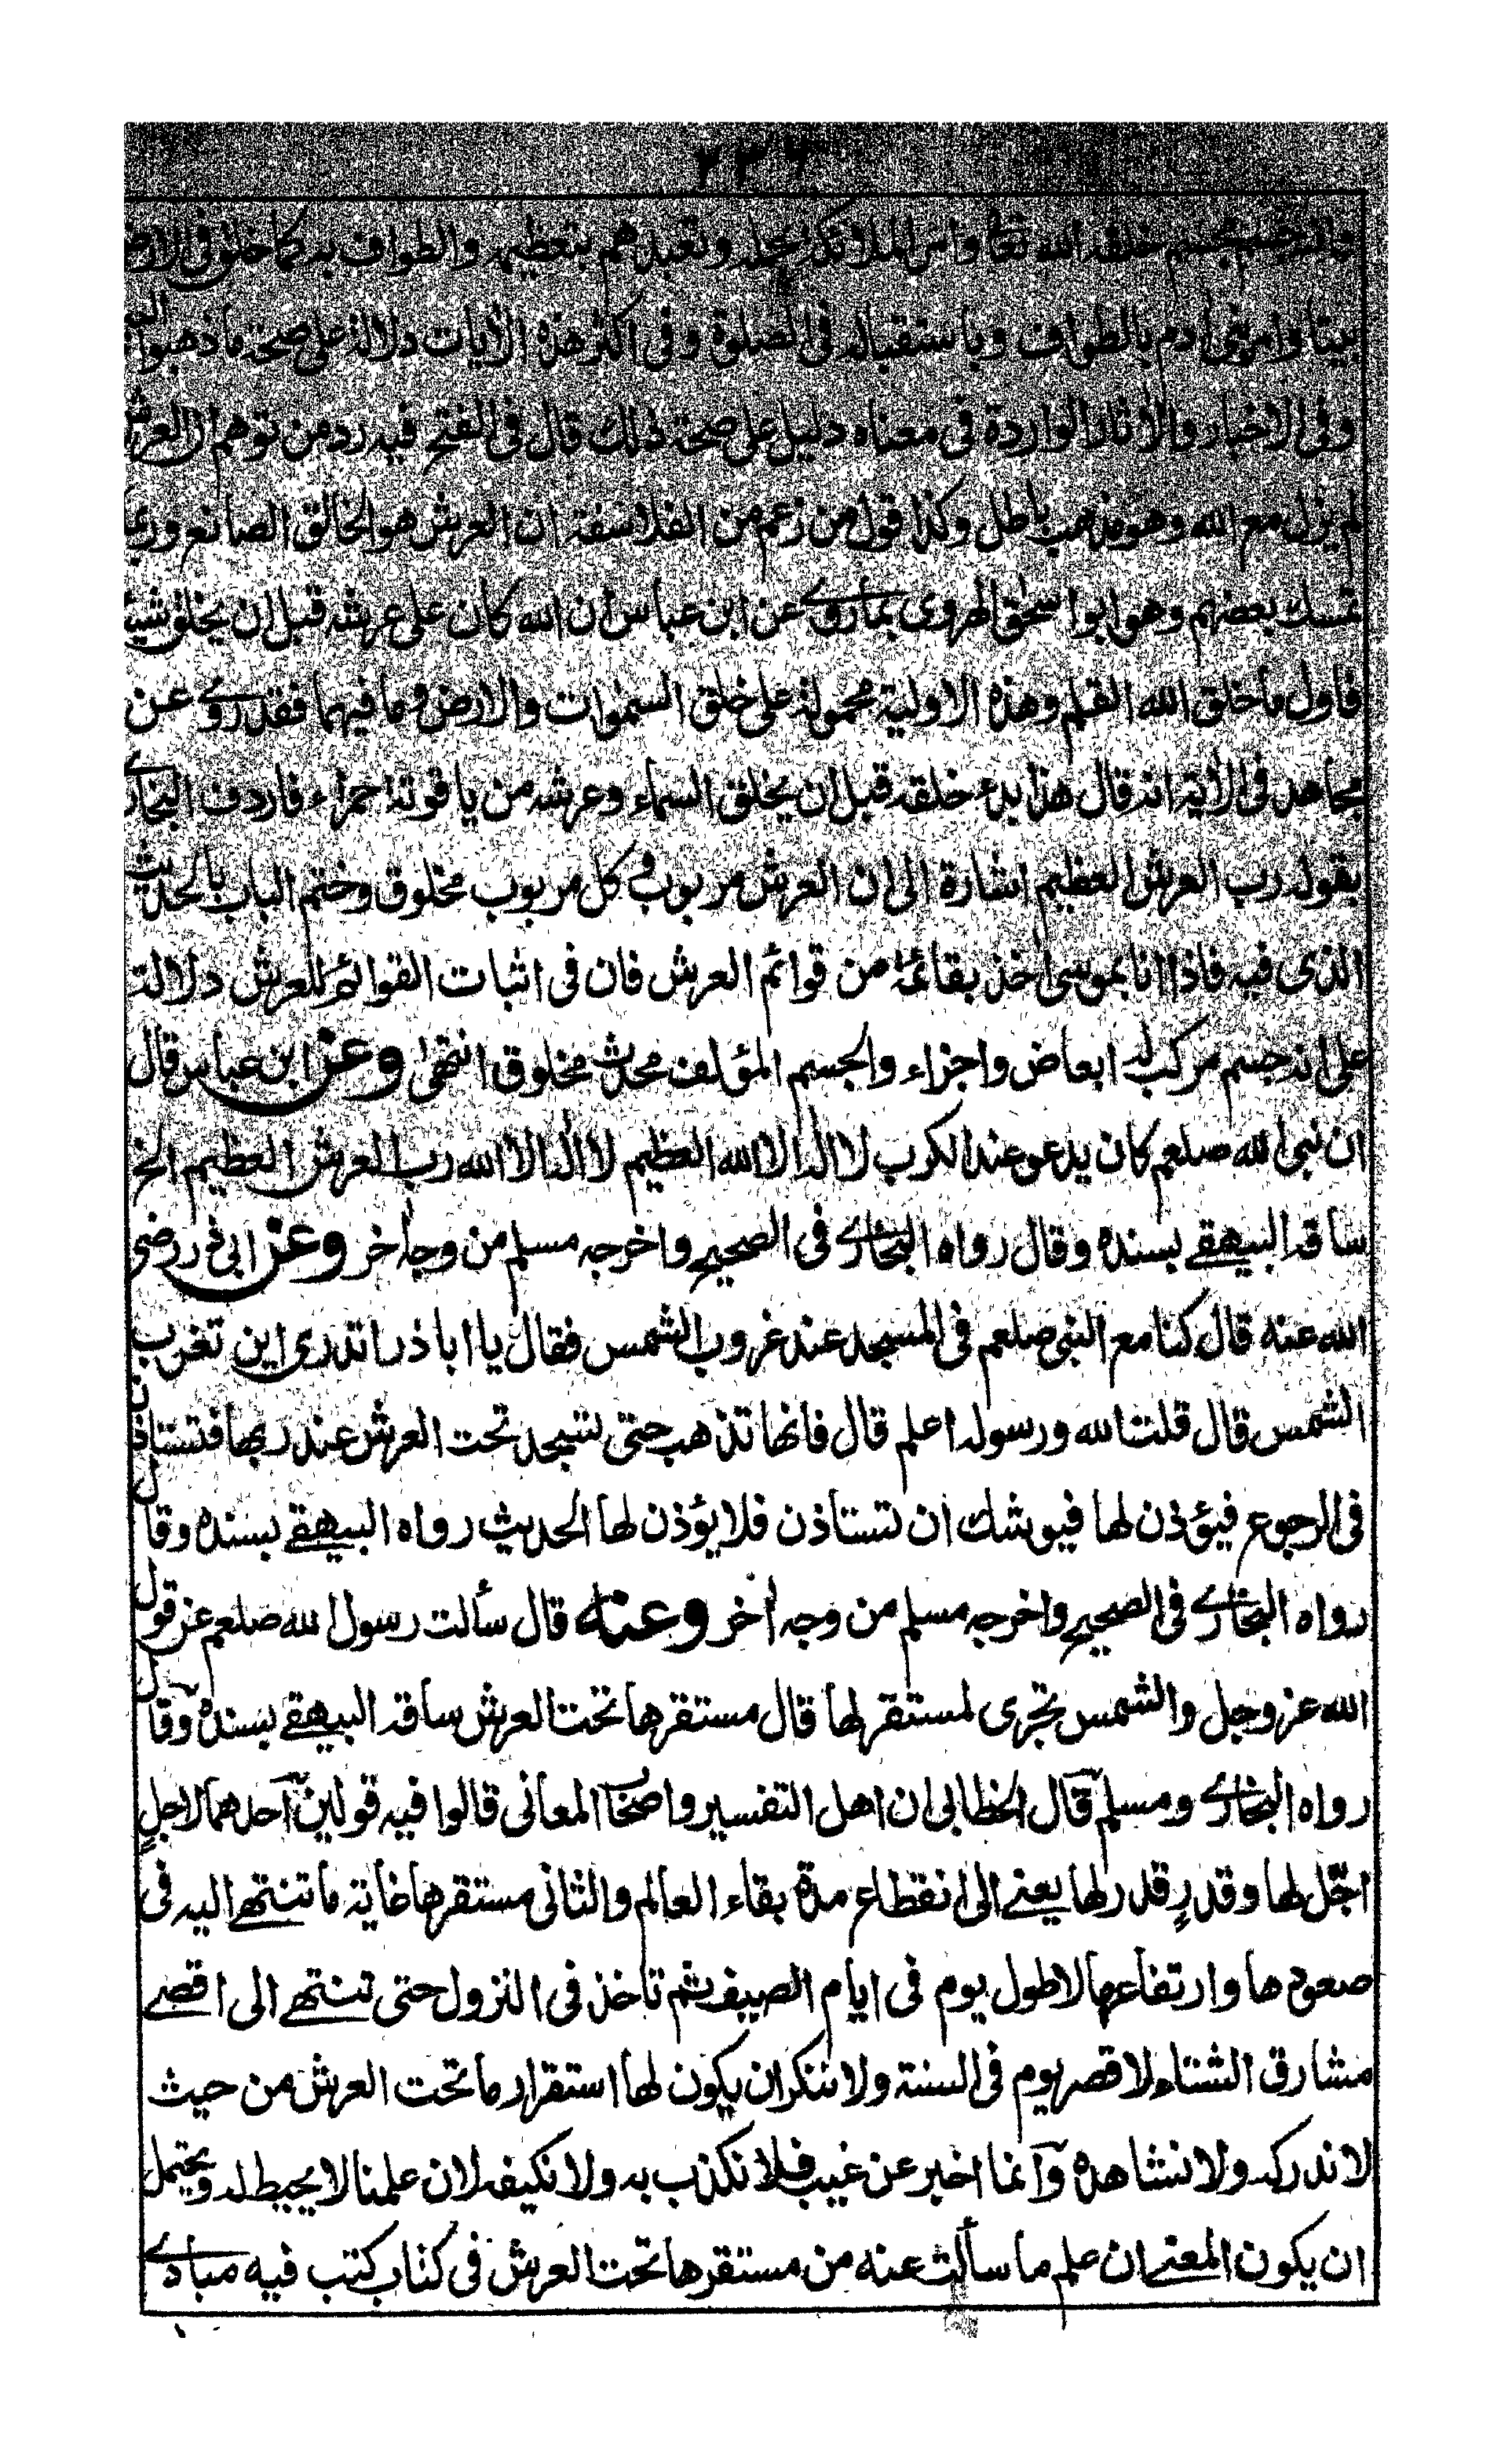 وانه جسم مجسم خلقه الله تعالى وامر الملائكة بحمله وتعبدهم بتعظيمه والطواف به كما خلق فى الارض
بيتا وامر بنى ادم بالطواف وباستقباله فى الصلوة وفى اكثر هذه الأيات دلالة على صحة ما ذهبوا اليه
وفى الاخبار والأثار الواردة فى معناه دليل على صحة ذلك قال فى الفتح فيه رد من توهم ان العرش
لم يزل مع الله وهو مذهب باطل وكذا قول من زعم من الفلاسفة ان العرش هو الخالق الصانع وربما
تمسك بعضهم وهو ابو اسحق الهروى بما روى عن ابن عباس ان الله كان على عرشه قبل ان يخلق شيئا
فاول ما خلق الله القلم وهذه الاولية محمولة على خلق السموات والارض وما فيهما فقد روى عن
مجاهد فى الأية انه قال هذا بدء خلقه قبل ان يخلق السماء وعرشه من ياقوتة حمراء فاردف البخارى
بقوله رب العرش العظيم اشارة الى ان العرش مربوب وكل مربوب مخلوق وختم الباب بالحديث
الذى فيه فاذا انا بموسى أخذ بقائمة من قوائم العرش فان فى اثبات القوائم للعرش دلالة
على انه جسم مركب له ابعاض واجزاء والجسم المؤلف محدث مخلوق انتهى وعن ابن عباس قال
ان نبى الله صلعم كان يدعو عند الكرب لا اله الا الله العظيم لا اله الا الله رب العرش العظيم الخ
ساقه البيهقى بسنده وقال رواه البخارى فى الصحيح واخرجه مسلم من وجه أخر وعن ابى ذر رضى
الله عنه قال كنا مع النبى صلعم فى المسجد عند غروب الشمس فقال يا ابا ذر اتدرى اين تغرب
الشمس قال قلت الله ورسوله اعلم قال فانها تذهب حتى تسجد تحت العرش عند ربها فتستاذن
فى الرجوع فيؤذن لها فيوشك ان تستاذن فلا يؤذن لها الحديث رواه البيهقى بسنده وقال
رواه البخارى فى الصحيح واخرجه مسلم من وجه أخر وعنه قال سألت رسول الله صلعم عن قول
الله عز وجل والشمس تجرى لمستقر لها قال مستقرها تحت العرش ساقه البيهقى بسنده وقال
رواه البخارى ومسلم قال الخطابى ان اهل التفسير واصحاب المعانى قالوا فيه قولين احدهما لاجل
اجّل لها وقدر قدر لها يعنى الى انقطاع مدة بقاء العالم والثانى مستقرها غاية ما تنتهى اليه فى
صعودها وارتفاعها لاطول يوم فى ايام الصيف ثم تاخذ فى النزول حتى تنتهى الى اقصى
مشارق الشتاء لاقصر يوم فى السنة ولا ننكر ان يكون لها استقرار ما تحت العرش من حيث
لا ندركه ولا نشاهده وانما اخبر عن غيب فلا نكذب به ولا نكيفه لان علمنا لا يحيط له ويحتمل
ان يكون المعنى ان علم ما سألت عنه من مستقرها تحت العرش فى كتاب كتب فيه مبادى